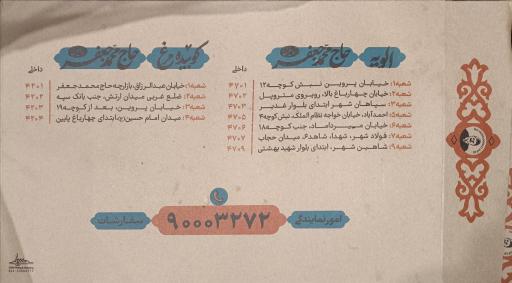 الویه حاج محمد جعفر
داخلی
شعبه۱: خیابان پروین نبش کوچه۱۲ ۴۷۰۱
شعبه۲: خیابان چهارباغ بالا، روبروی متروپل ۴۷۰۲
شعبه۳: سپاهان شهر ابتدای بلوار غدیر ۴۷۰۳
شعبه۵: احمدآباد، خیابان خواجه نظام الملک، نبش کوچه۴ ۴۷۰۵
شعبه۶: خیابان میرداماد، جنب کوچه۱۸ ۴۷۰۶
شعبه۷: فولاد شهر، شهدا، شاهد۶، میدان حجاب ۴۷۰۷
شعبه۹: شاهین شهر، ابتدای بلوار شهید بهشتی ۴۷۰۹
کوبیده مرغ حاج محمد جعفر
داخلی
شعبه۱: خیابان عبدالرزاق، بازارچه حاج محمد جعفر ۴۲۰۱
شعبه۲: ضلع غربی میدان ارتش، جنب بانک سپه ۴۲۰۲
شعبه۳: خیابان پروین، بعد از کوچه۱۹ ۴۲۰۳
شعبه۴: میدان امام حسین(ع)، ابتدای چهارباغ پایین ۴۲۰۴
امور نمایندگی ۹۰۰۰۳۲۷۲ سفارشات